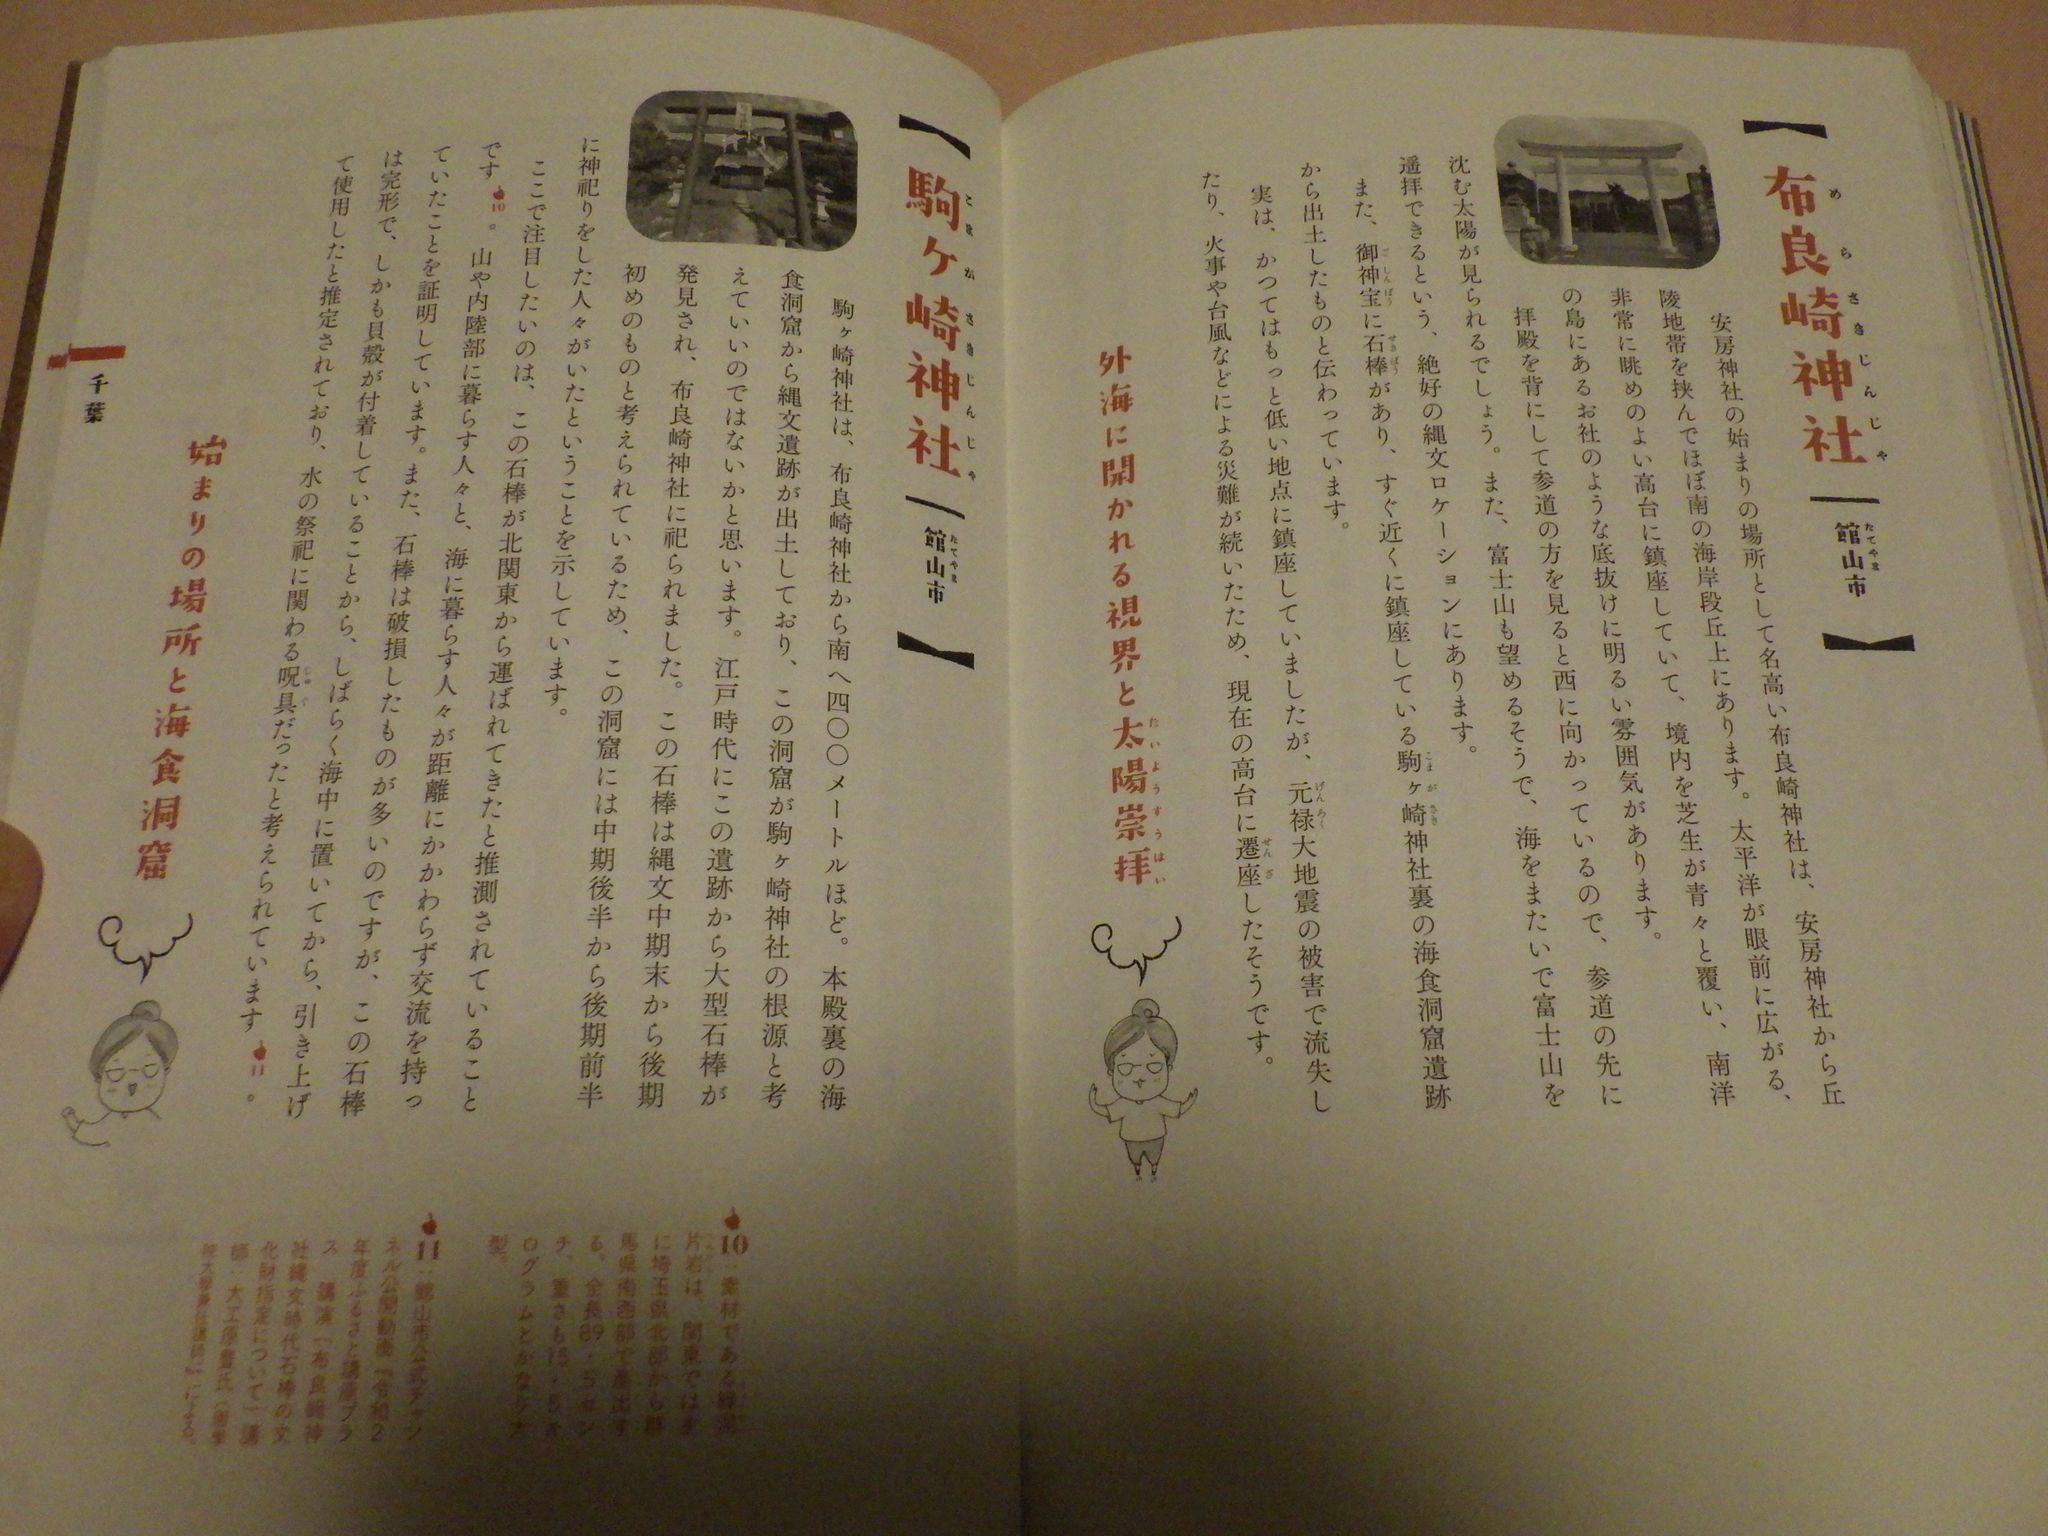 【布良崎神社―館山市】
めらさきじんじゃ
たてやま
安房神社の始まりの場所として名高い布良崎神社は、安房神社から丘
陵地帯を挟んでほぼ南の海岸段丘上にあります。太平洋が眼前に広がる、
非常に眺めのよい高台に鎮座していて、境内を芝生が青々と覆い、南洋
の島にあるお社のような底抜けに明るい雰囲気があります。
拝殿を背にして参道の方を見ると西に向かっているので、参道の先に
沈む太陽が見られるでしょう。また、富士山も望めるそうで、海をまたいで富士山を
遥拝できるという、絶好の縄文ロケーションにあります。
また、御神宝に石棒があり、すぐ近くに鎮座している駒ヶ崎神社裏の海食洞窟遺跡
から出土したものと伝わっています。
実は、かつてはもっと低い地点に鎮座していましたが、元禄大地震の被害で流失し
たり、火事や台風などによる災難が続いたため、現在の高台に遷座したそうです。
外海に開かれる視界と太陽崇拝
たいようすうはい
【駒ヶ崎神社―館山市】
こまがさきじんじゃ
たてやま
駒ヶ崎神社は、布良崎神社から南へ四〇〇メートルほど。本殿裏の海
食洞窟から縄文遺跡が出土しており、この洞窟が駒ヶ崎神社の根源と考
えていいのではないかと思います。江戸時代にこの遺跡から大型石棒が
発見され、布良崎神社に祀られました。この石棒は縄文中期末から後期
初めのものと考えられているため、この洞窟には中期後半から後期前半
に神祀りをした人々がいたということを示しています。
ここで注目したいのは、この石棒が北関東から運ばれてきたと推測されていること
です10。山や内陸部に暮らす人々と、海に暮らす人々が距離にかかわらず交流を持っ
ていたことを証明しています。また、石棒は破損したものが多いのですが、この石棒
は完形で、しかも貝殻が付着していることから、しばらく海中に置いてから、引き上げ
て使用したと推定されており、水の祭祀に関わる呪具だったと考えられています11。
始まりの場所と海食洞窟
千葉
10：素材である緑泥
片岩は、関東では主
に埼玉県北部から群
馬県南西部で産出す
る。全長89・5セン
チ、重さも15・5キ
ログラムとかなり大
型。
11：館山市公式チャン
ネル公開動画『令和2
年度ふるさと講座プラ
ス 講演「布良崎神
社縄文時代石棒の文
化財指定について」講
師・大工原豊氏
による。